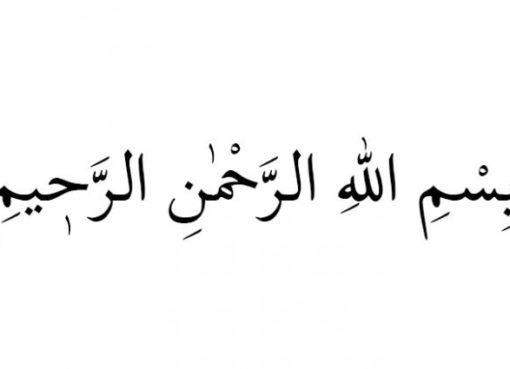 بِسْمِ اللّٰهِ الرَّحْمٰنِ الرَّحٖيمِ